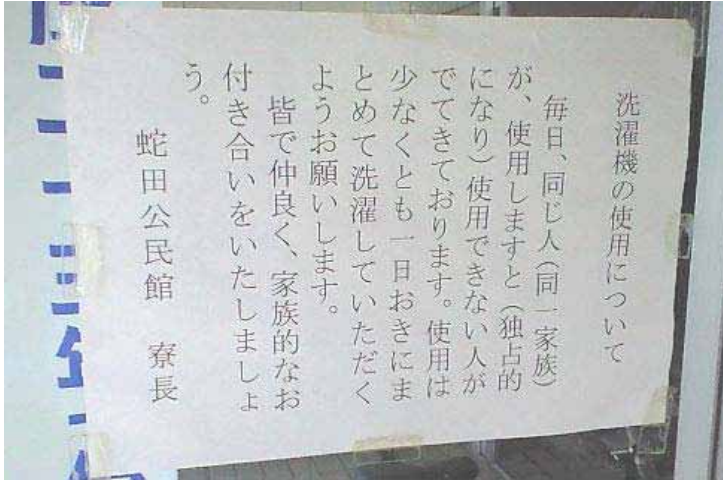 洗濯機の使用について
毎日、同じ人（同一家族）
が、使用しますと（独占的
になり）使用できない人が
でてきております。使用は
少なくとも一日おきにま
とめて洗濯していただく
ようお願いします。
皆で仲良く、家族的なお
付き合いをいたしましょ
う。
蛇田公民館　寮長